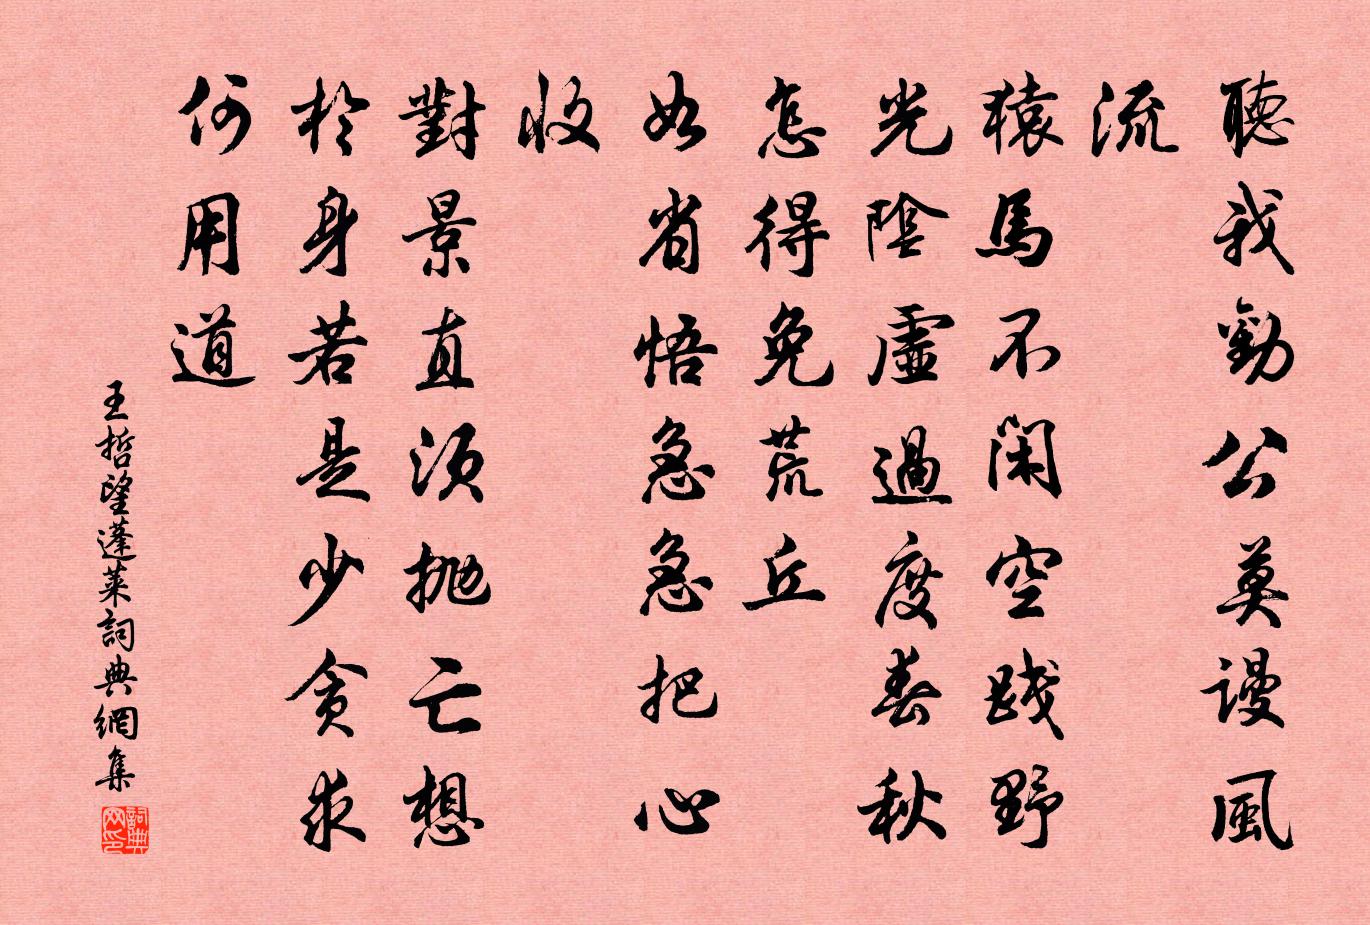 聽我勸公莫謾風
流
猿馬不閑空踐野
光陰虛過度春秋
怎得免荒丘
如省悟急急把心
收
對景直須拋亡想
於身若是少貪求
何用道
王哲望蓬萊詞典網集
詞典网印